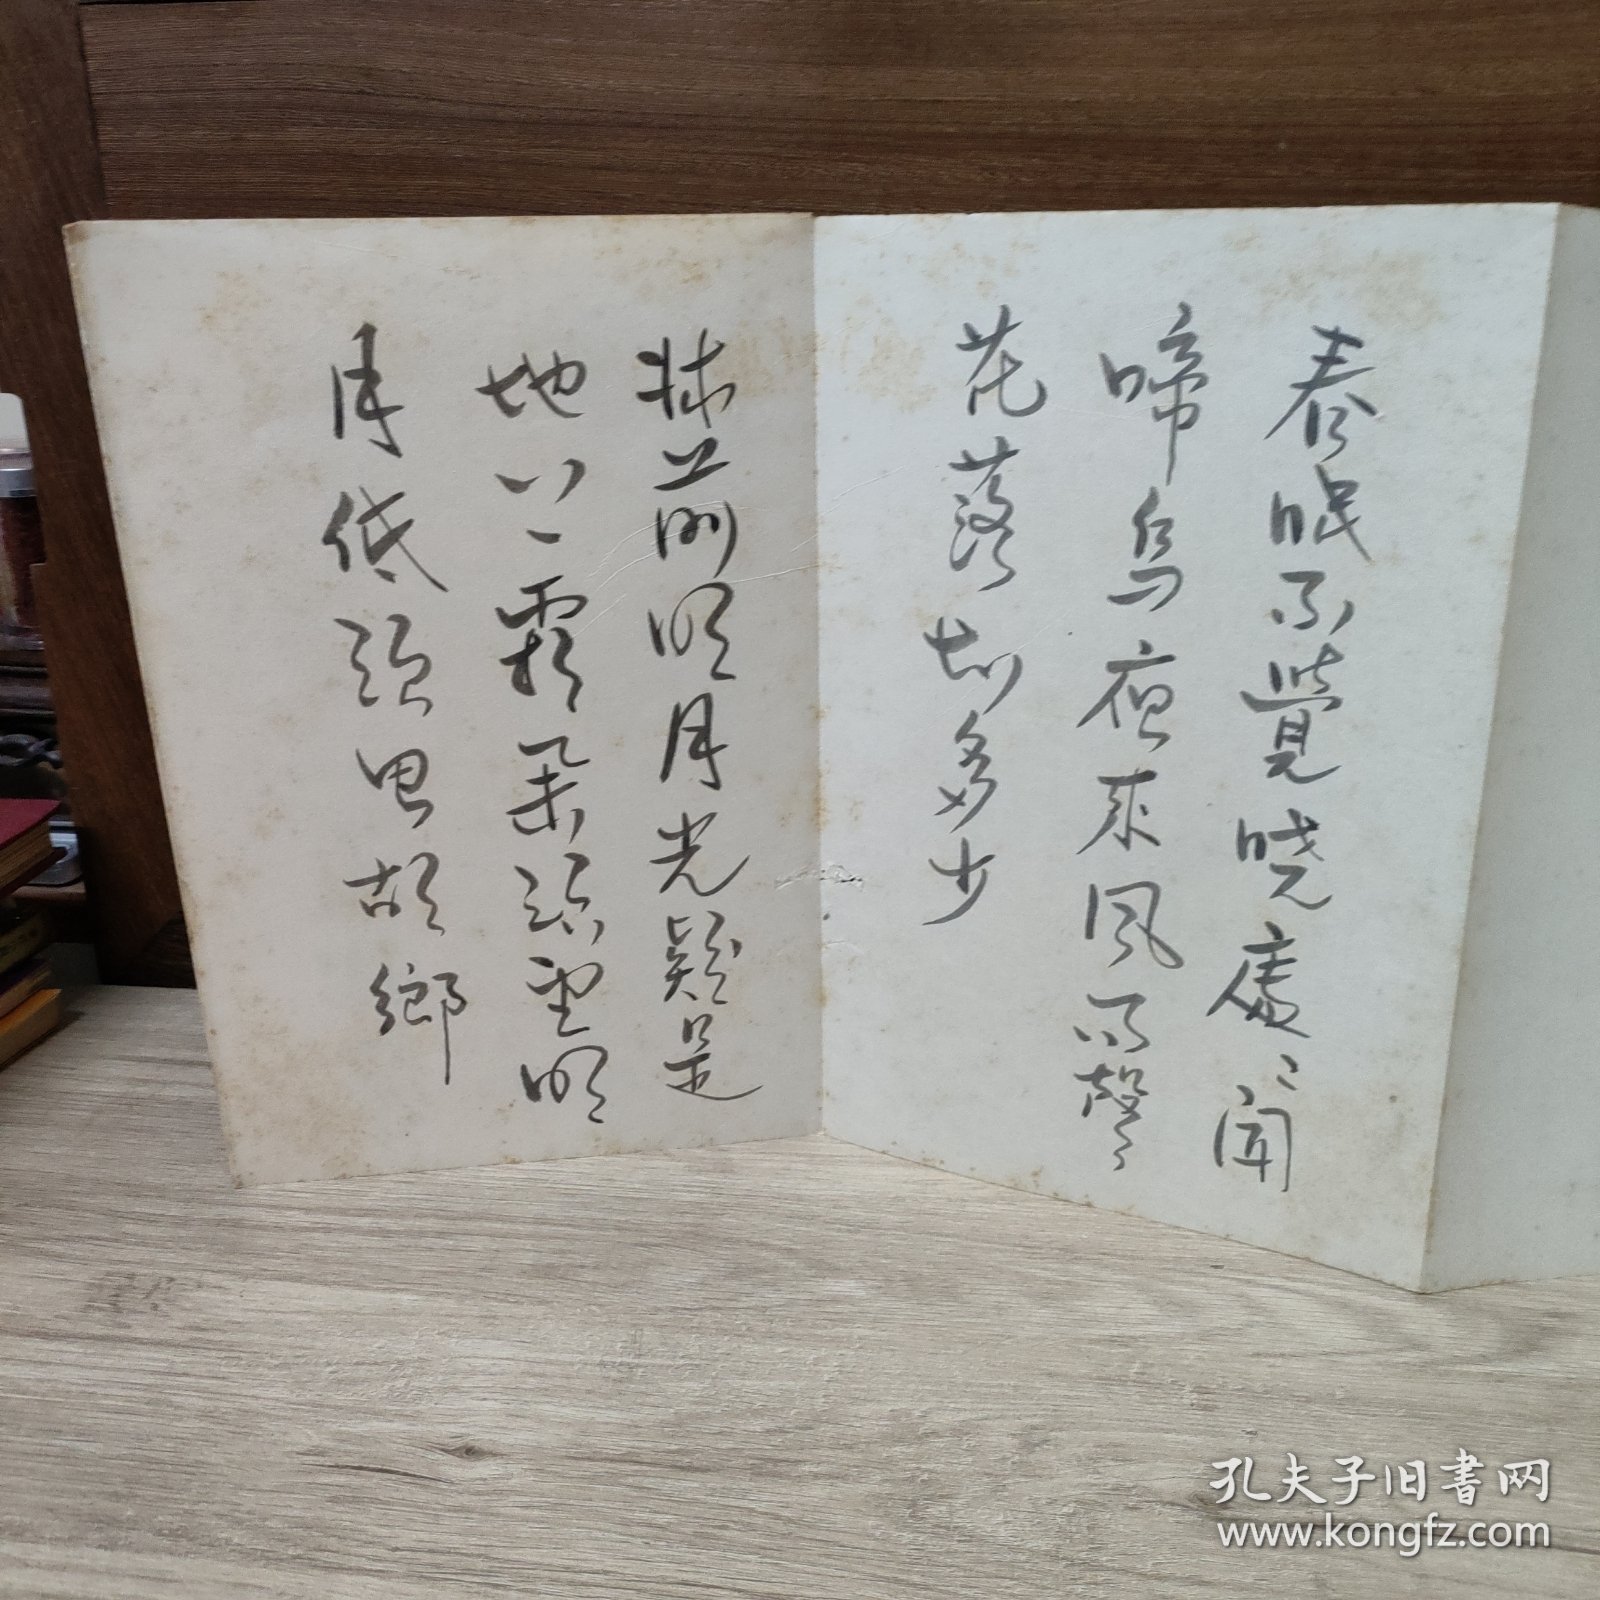 春眠不覺曉處〻聞
啼鳥夜來風雨聲
花落知多少
牀前明月光疑是
地上霜舉頭望明
月低頭思故鄉
孔夫子旧书网
www.kongfz.com